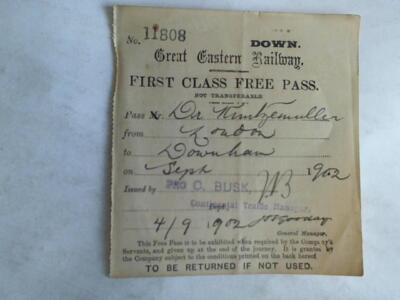 No. 11808 DOWN.
Great Eastern Railway.
FIRST CLASS FREE PASS.
NOT TRANSFERABLE
Pass Mr. Dr
from London
to Downham
on Sept 1902
Issued by PRO C. BUSK,
Commercial Traffic Manager,
4/9 1902
General Manager.
This Free Pass is to be exhibited when required by the Company's
Servants, and given up at the end of the journey. It is granted by
the Company subject to the conditions printed on the back hereof
TO BE RETURNED IF NOT USED.